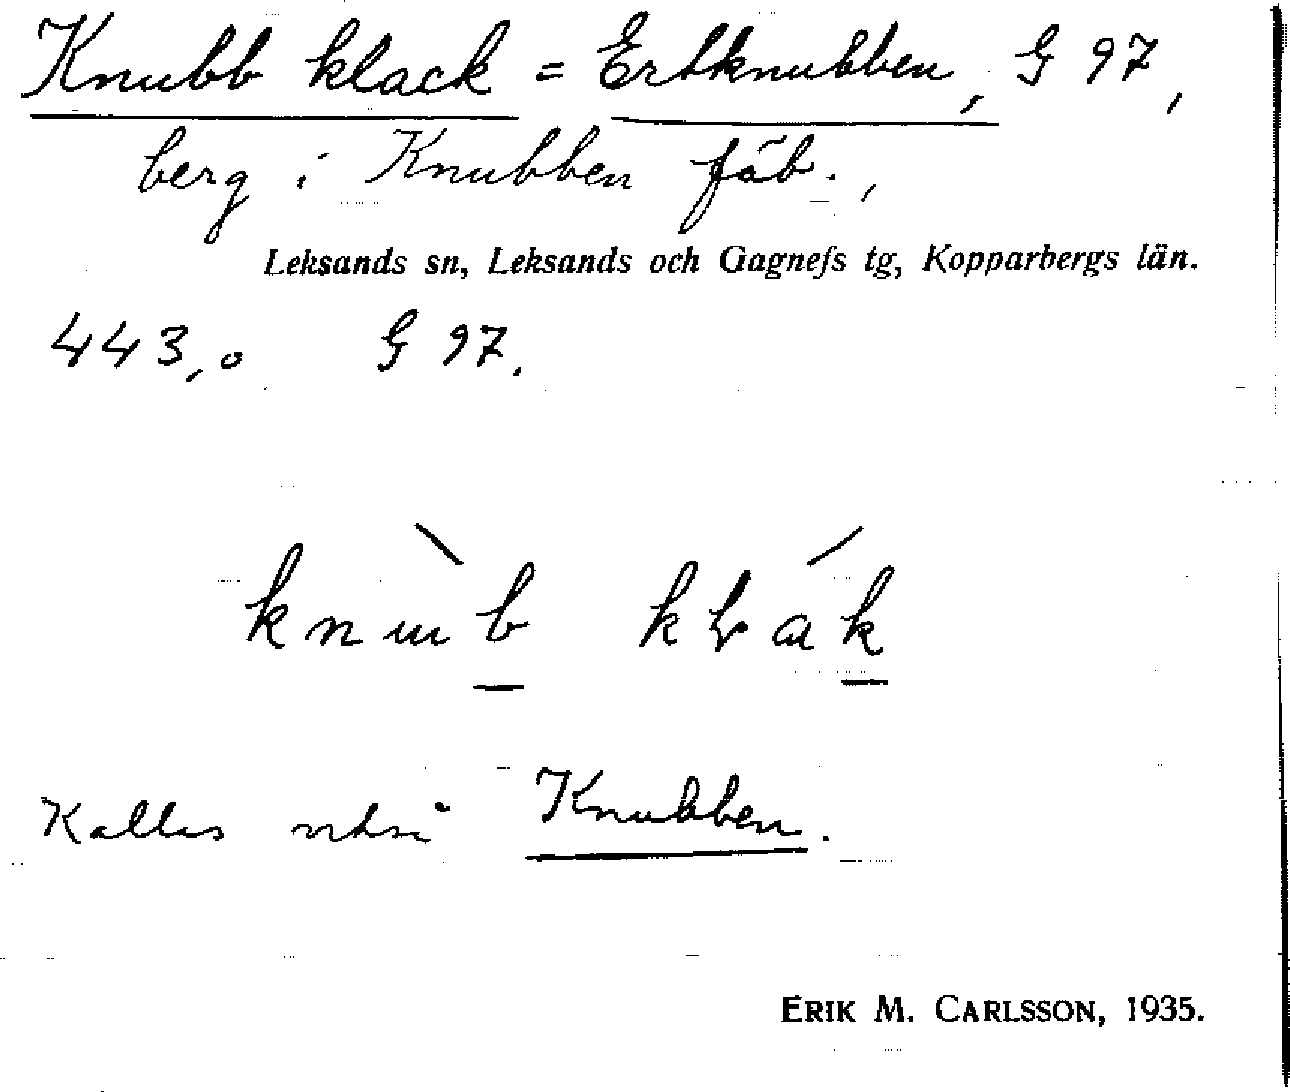 Knubb klack = Ertknubben, G 97,
berg i Knubben fäb.,
Leksands sn, Leksands och Gagnefs tg, Kopparbergs län.
443,0 G 97.
Kallas också Knubben.
ERIK M. CARLSSON, 1935.